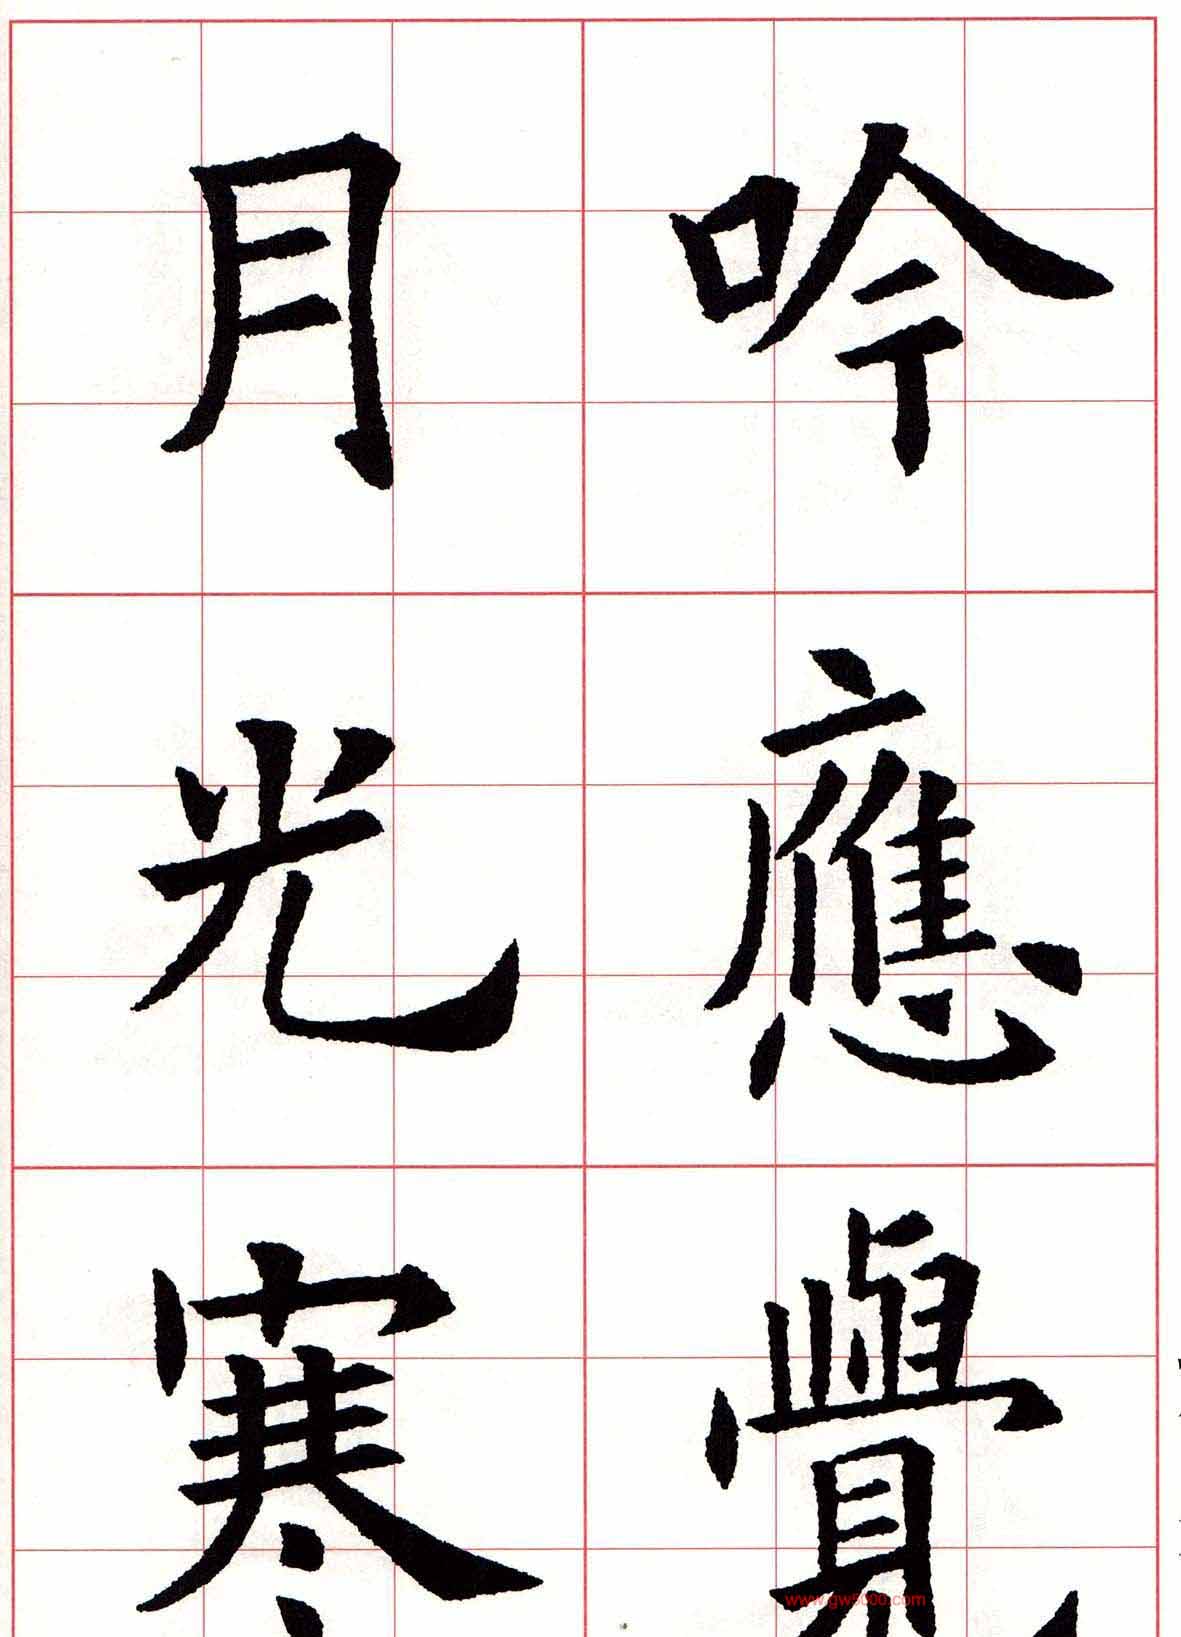 吟應覺
月光寒
www.gw5000.com